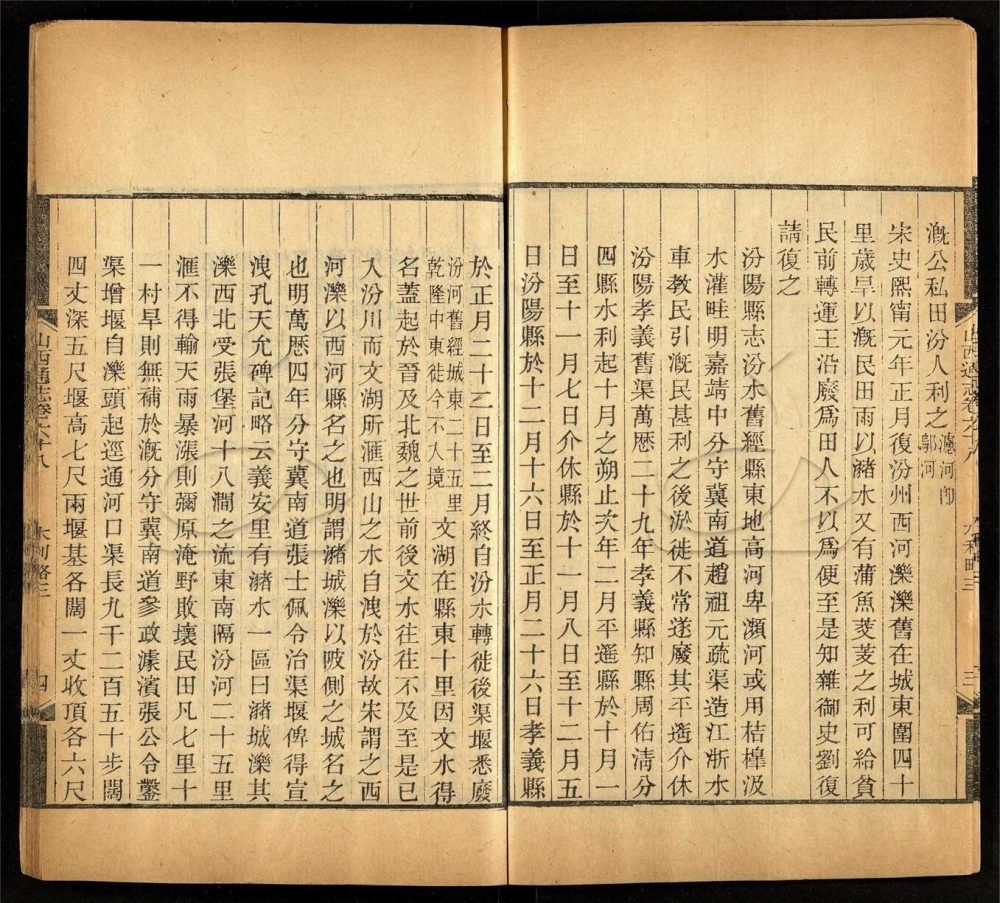 漑公私田汾人利之濾河卽鄔河
宋史熙甯元年正月復汾州西河濼濼舊在城東圍四十
里歲旱以漑民田雨以瀦水又有蒲魚茭芰之利可給貧
民前轉運王沿廢爲田人不以爲便至是知雜御史劉復
請復之
汾陽縣志汾水舊經縣東地高河卑瀕河或用桔橰汲
水灌畦明嘉靖中分守冀南道趙祖元疏渠造江浙水
車教民引漑民甚利之後淤徙不常遂廢其平遙介休
汾陽孝義舊渠萬厯二十九年孝義縣知縣周佑淸分
四縣水利起十月之朔止次年二月平遙縣於十月一
日至十一月七日介休縣於十一月八日至十二月五
日汾陽縣於十二月十六日至正月二十六日孝義縣
山西通志卷六十八 水利略三 三
於正月二十三日至二月終自汾水轉徙後渠堰悉廢
汾河舊經城東二十五里乾隆中東徙今不入境 文湖在縣東十里因文水得
名蓋起於晉及北魏之世前後文水往往不及至是已
入汾川而文湖所滙西山之水自洩於汾故宋謂之西
河濼以西河縣名之也明謂瀦城濼以陂側之城名之
也明萬厯四年分守冀南道張士佩令治渠堰俾得宣
洩孔天允碑記略云義安里有瀦水一區曰瀦城濼其
濼西北受張堡河十八澗之流東南隔汾河二十五里
滙不得輸天雨暴漲則彌原淹野敗壞民田凡七里十
一村旱則無補於漑分守冀南道參政濛濱張公令鑿
渠增堰自濼頭起逕通河口渠長九千二百五十步闊
四丈深五尺堰高七尺兩堰基各闊一丈收頂各六尺
山西通志卷六十八 水利略三 四